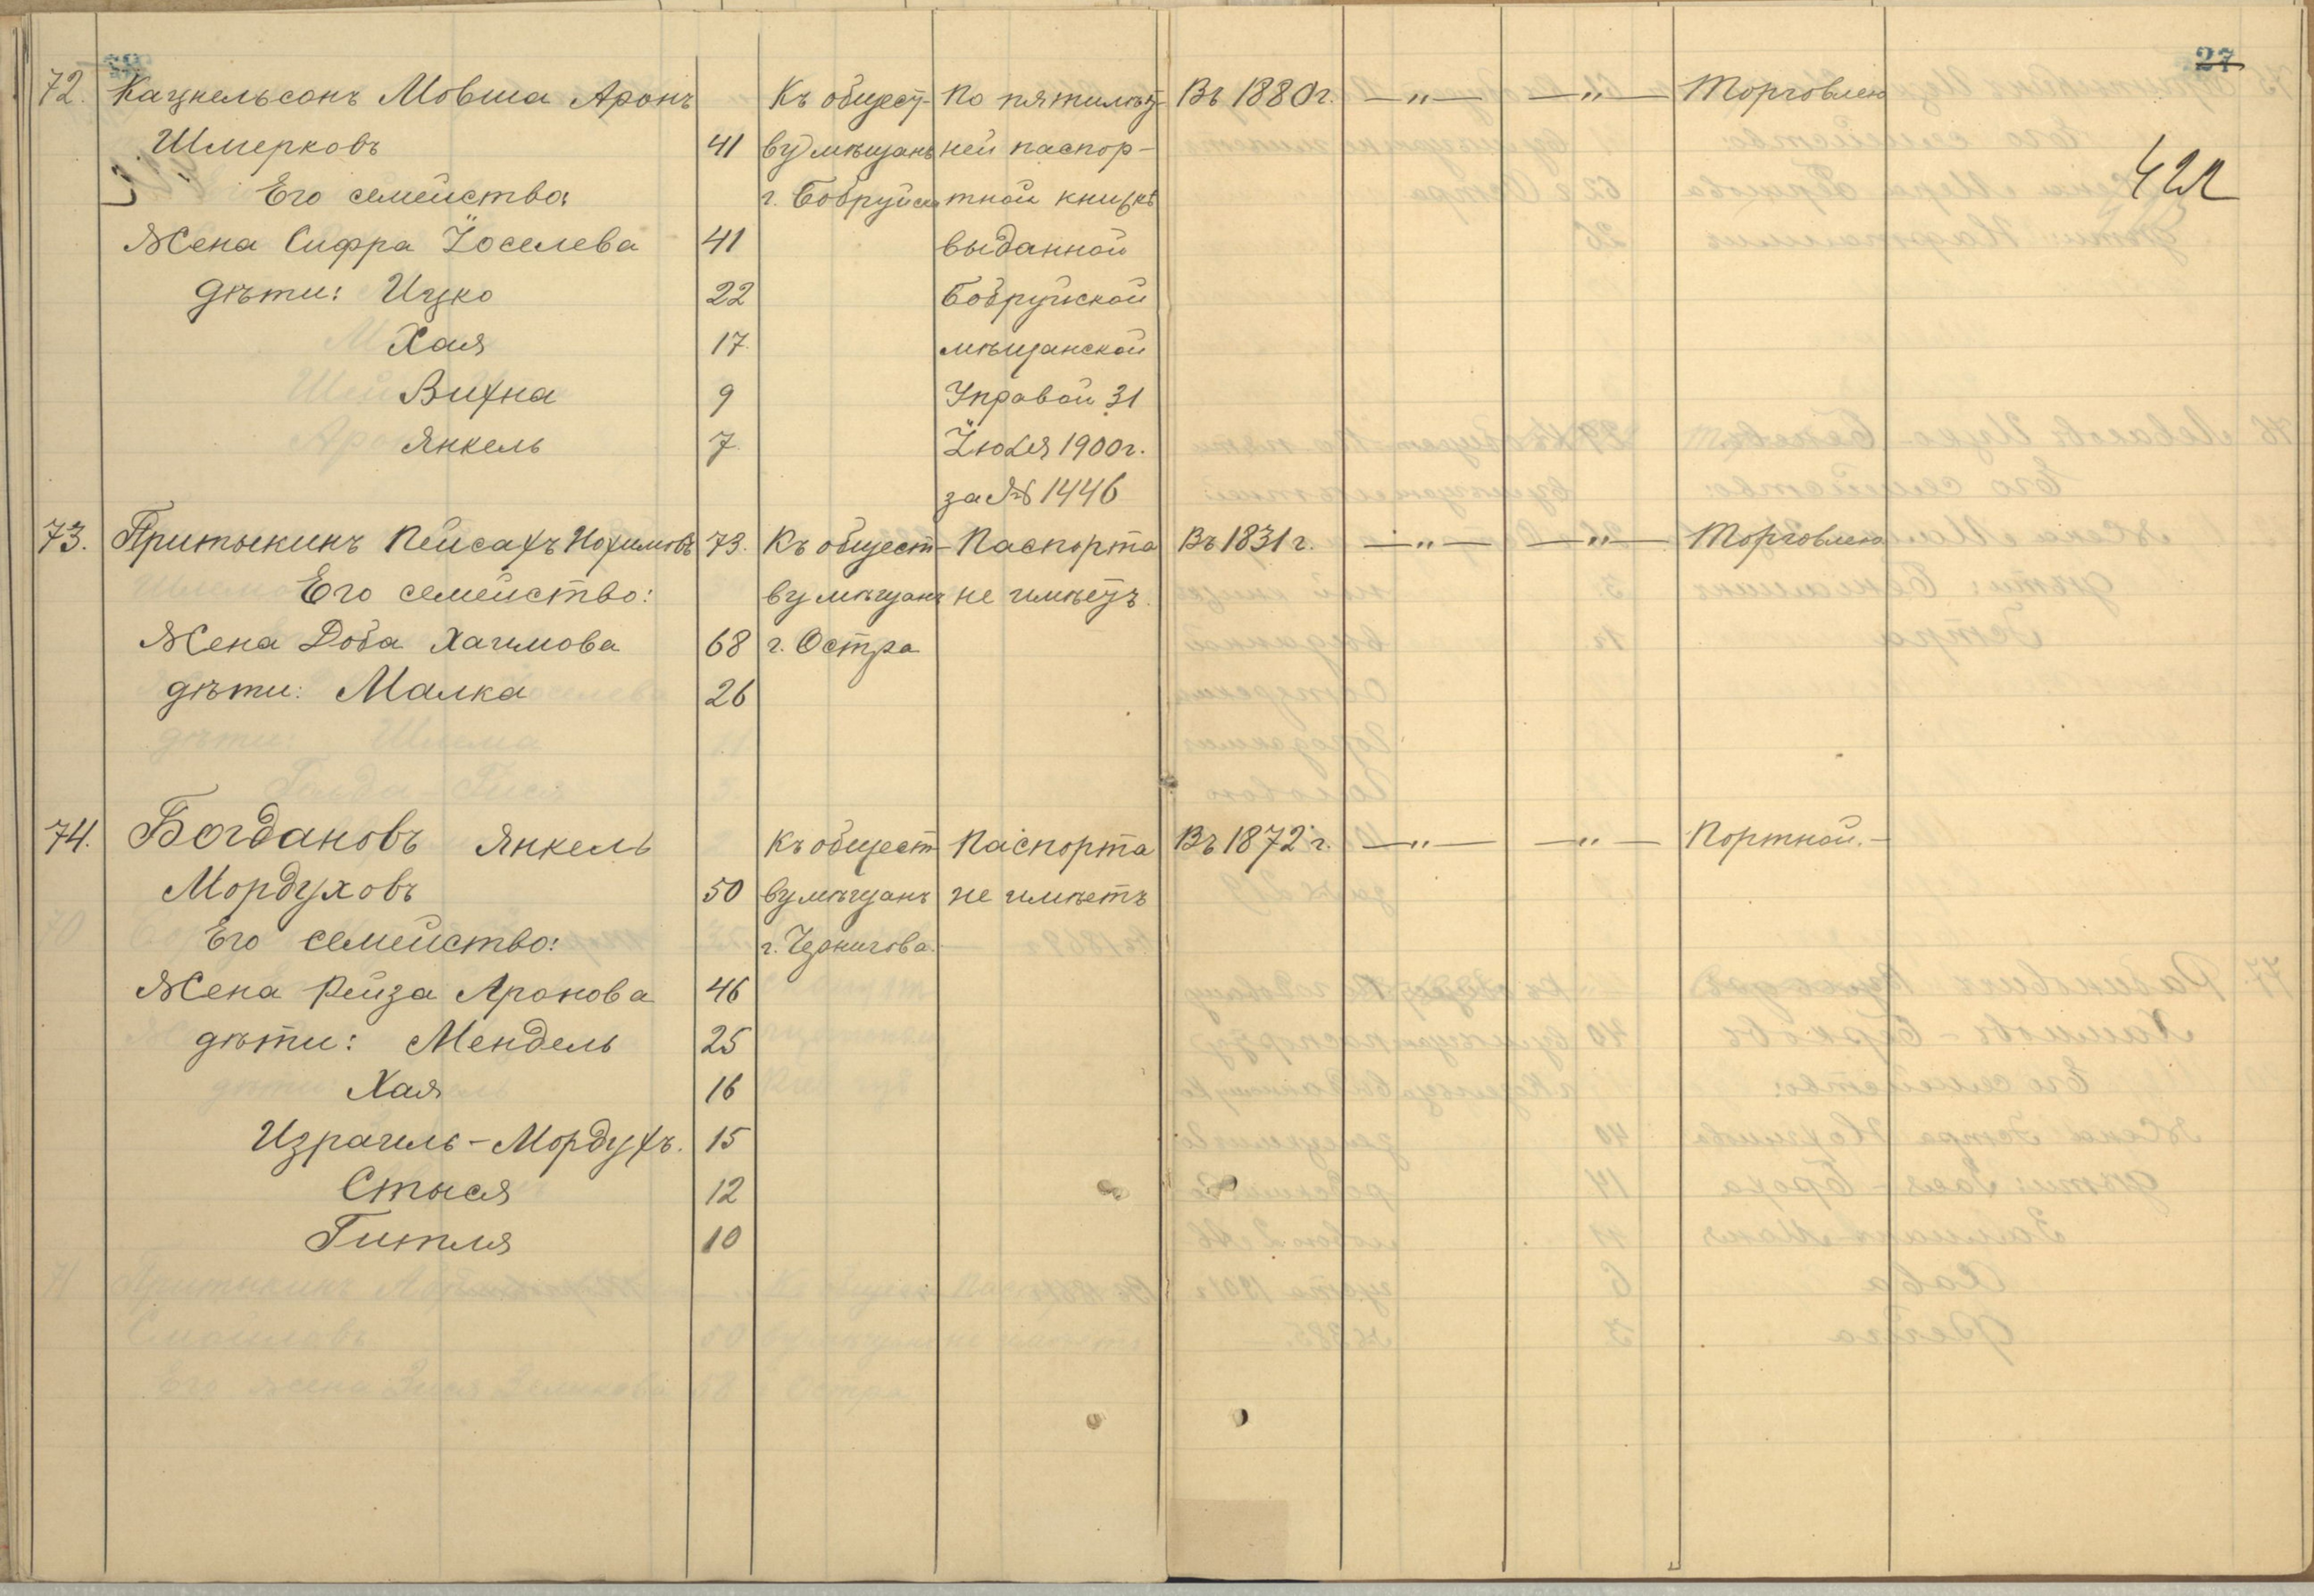 27
42
72. Кацнельсонъ Мовша Аронъ Къ общест- По пятилѣт- Въ 1880 г. —"— —"— Торговлею
Шмерковъ 41 ву мѣщанъ ней паспор-
Его семейство: г. Бобруйска тной книжкѣ
Жена Сифра Іоселева 41 выданной
дѣти: Ицко 22 Бобруйской
Хая 17 мѣщанской
Вихна 9 Управой 31
Янкель 7 Іюля 1900 г.
за № 1446
73. Притыкинъ Пейсахъ Нохимовъ 73. Къ общест- Паспорта Въ 1831 г. —"— —"— Торговлею
Его семейство: ву мѣщанъ не имѣетъ.
Жена Доба Хаимова 68 г. Остра
дѣти: Малка 26
74. Богдановъ Янкель Къ общест Паспорта Въ 1872 г. —"— —"— Портной.—
Мордуховъ 50 ву мѣщанъ не имѣетъ
Его семейство: г. Чернигова.
Жена Рейза Аронова 46
дѣти: Мендель 25
Хая 16
Израиль-Мордухъ. 15
Стыся 12
Гитля 10